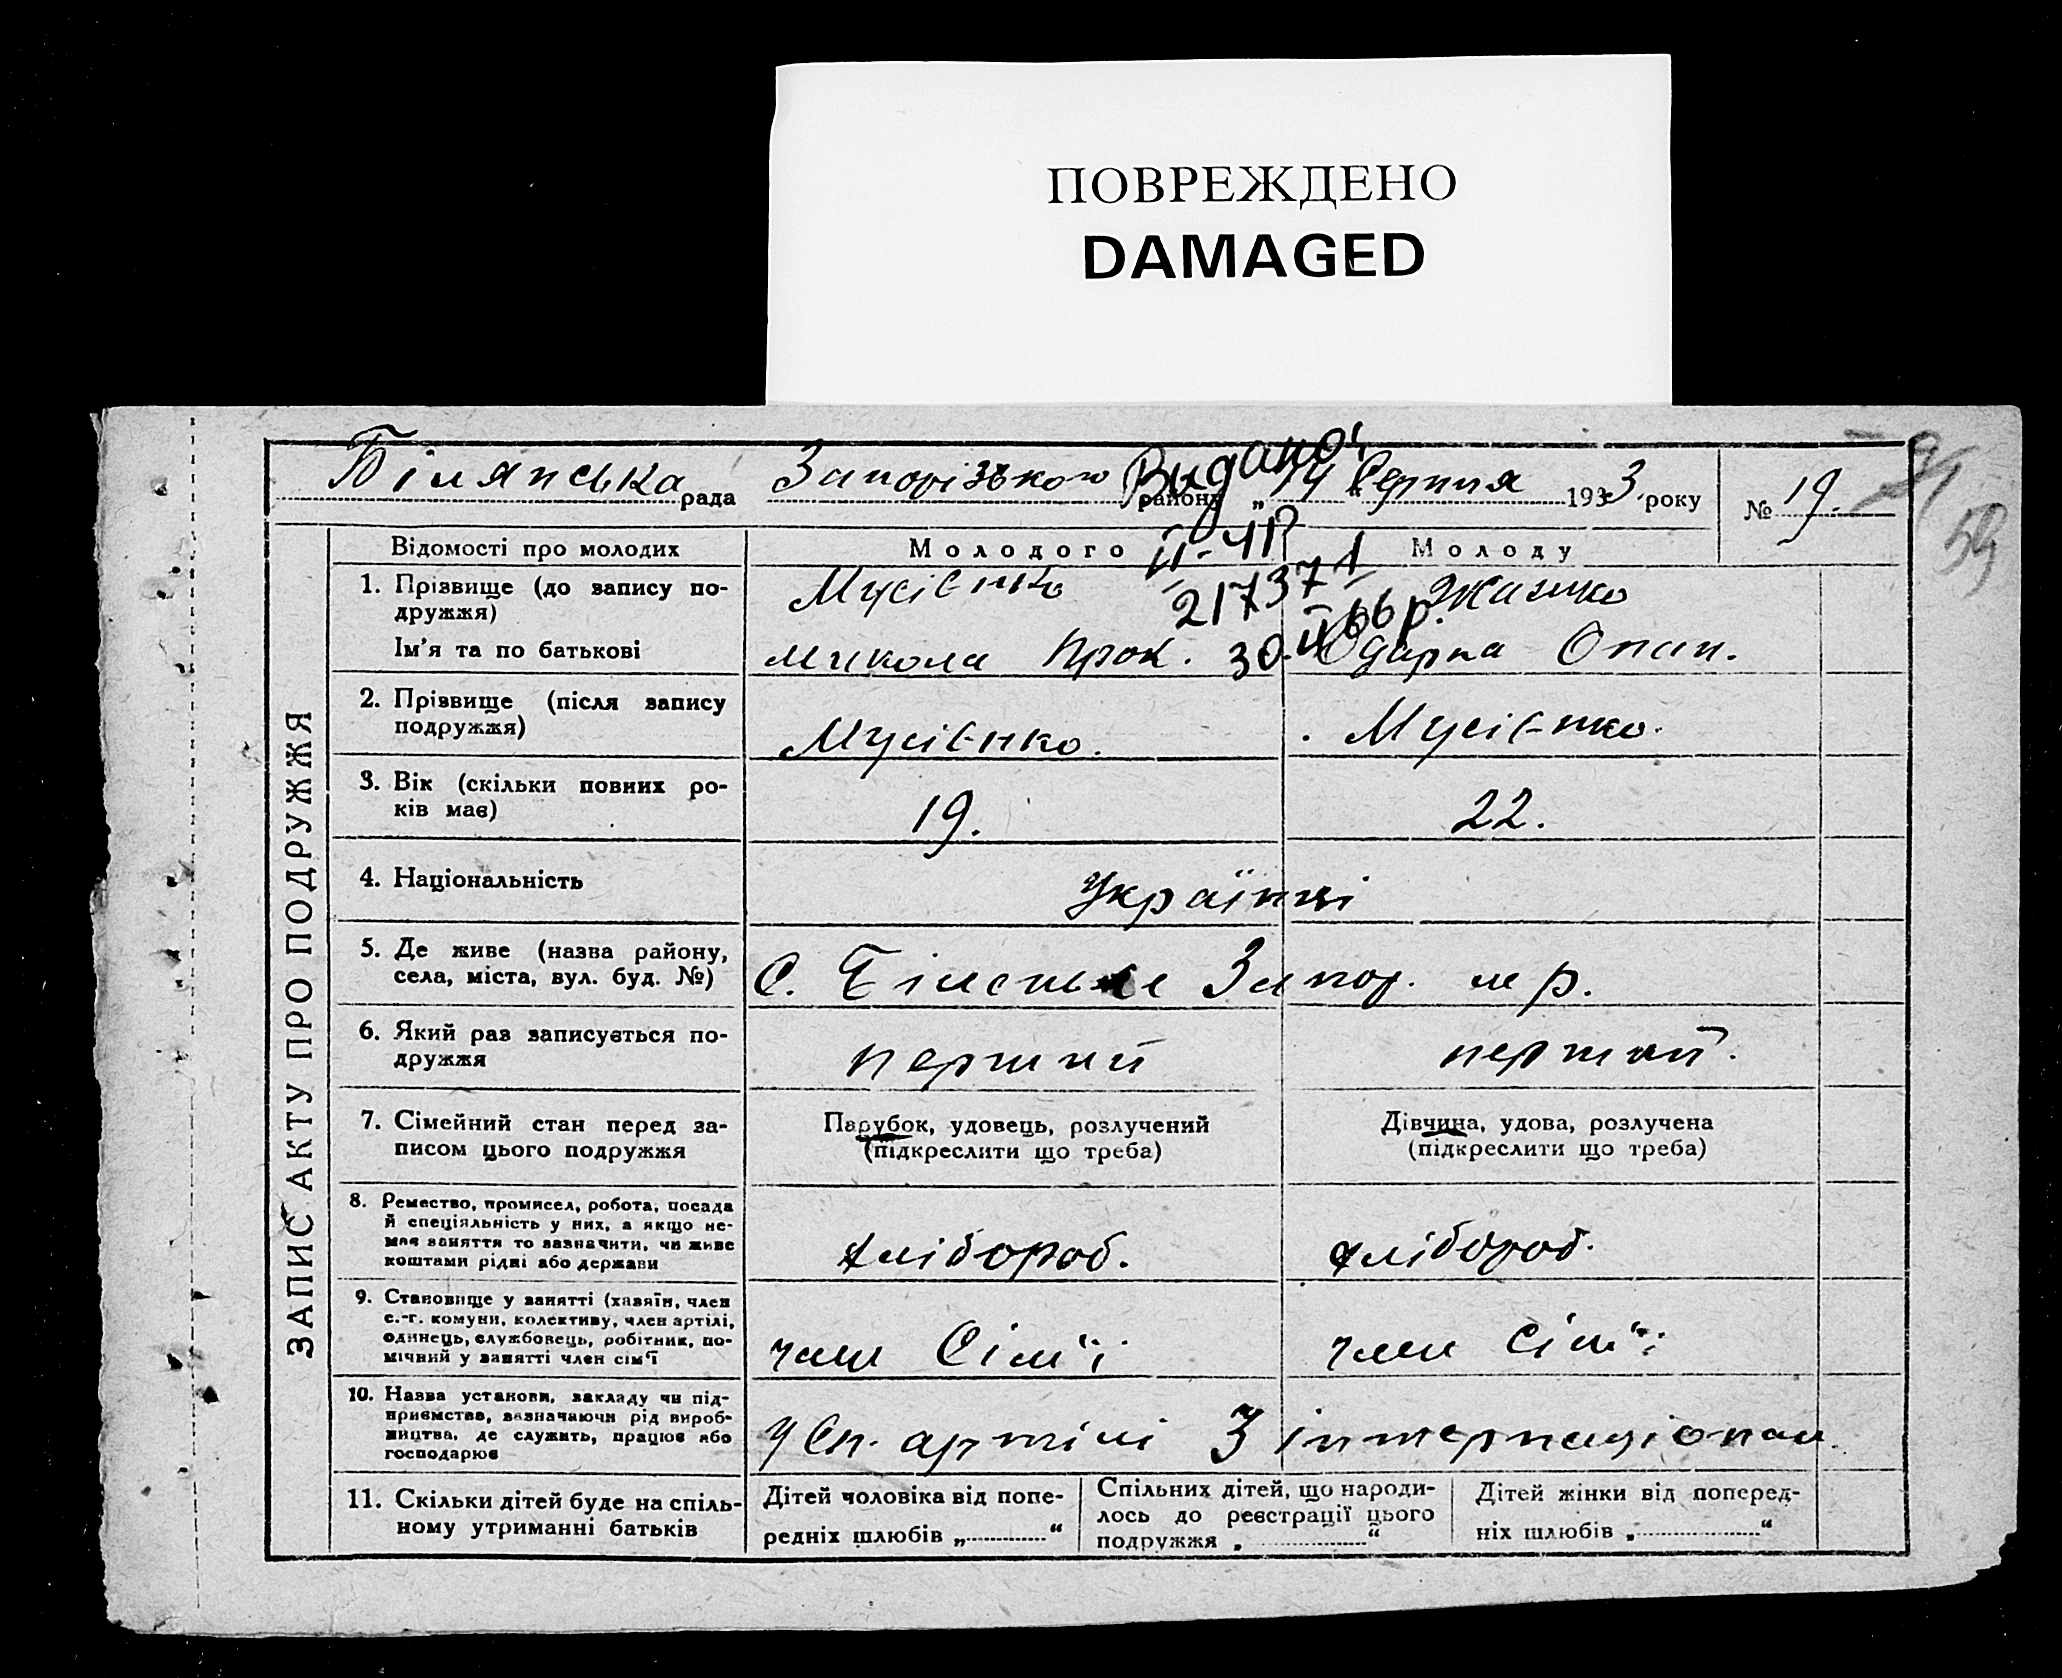 ПОВРЕЖДЕНО
DAMAGED
Білянська рада Запорізького району „14 Серпня 1933 року № 19.
Видано
II-ЧР
217371
30.II 66 р.
59
ЗАПИС АКТУ ПРО ПОДРУЖЖЯ
Відомості про молодих Молодого Молоду
1. Прізвище (до запису по-
дружжя)
Мусієнко
Ім'я та по батькові
Микола Прок. Одарка Опан.
2. Прізвище (після запису
подружжя)
Мусієнко. Мусієнко.
3. Вік (скільки повних ро-
ків має)
19. 22.
4. Національність
Українці
5. Де живе (назва району,
села, міста, вул. буд. №)
С. Біленьке Запор. р.
6. Який раз записується по-
дружжя
перший перший.
7. Сімейний стан перед за-
писом цього подружжя
Парубок, удовець, розлучений
(підкреслити що треба)
Дівчина, удова, розлучена
(підкреслити що треба)
8. Ремество, промисел, робота, посада
й спеціяльність у них, а якщо не-
має заняття то зазначити, чи живе
коштами рідні або держави
хлібороб. хлібороб.
9. Становище у занятті (хазяїн, член
с.-г. комуни, колективу, член артілі,
одинець, службовець, робітник, по-
мічний у занятті член сім'ї
член Сім'ї член Сім'ї
10. Назва установи, закладу чи під-
приємства, зазначаючи рід вироб-
ництва, де служить, працює або
господарює
У Сп. артілі 3 інтернаціонал.
11. Скільки дітей буде на спіль-
ному утриманні батьків
Дітей чоловіка від попе-
редніх шлюбів „ “
Спільних дітей, що народи-
лось до реєстрації цього
подружжя „ “
Дітей жінки від поперед-
ніх шлюбів „ “